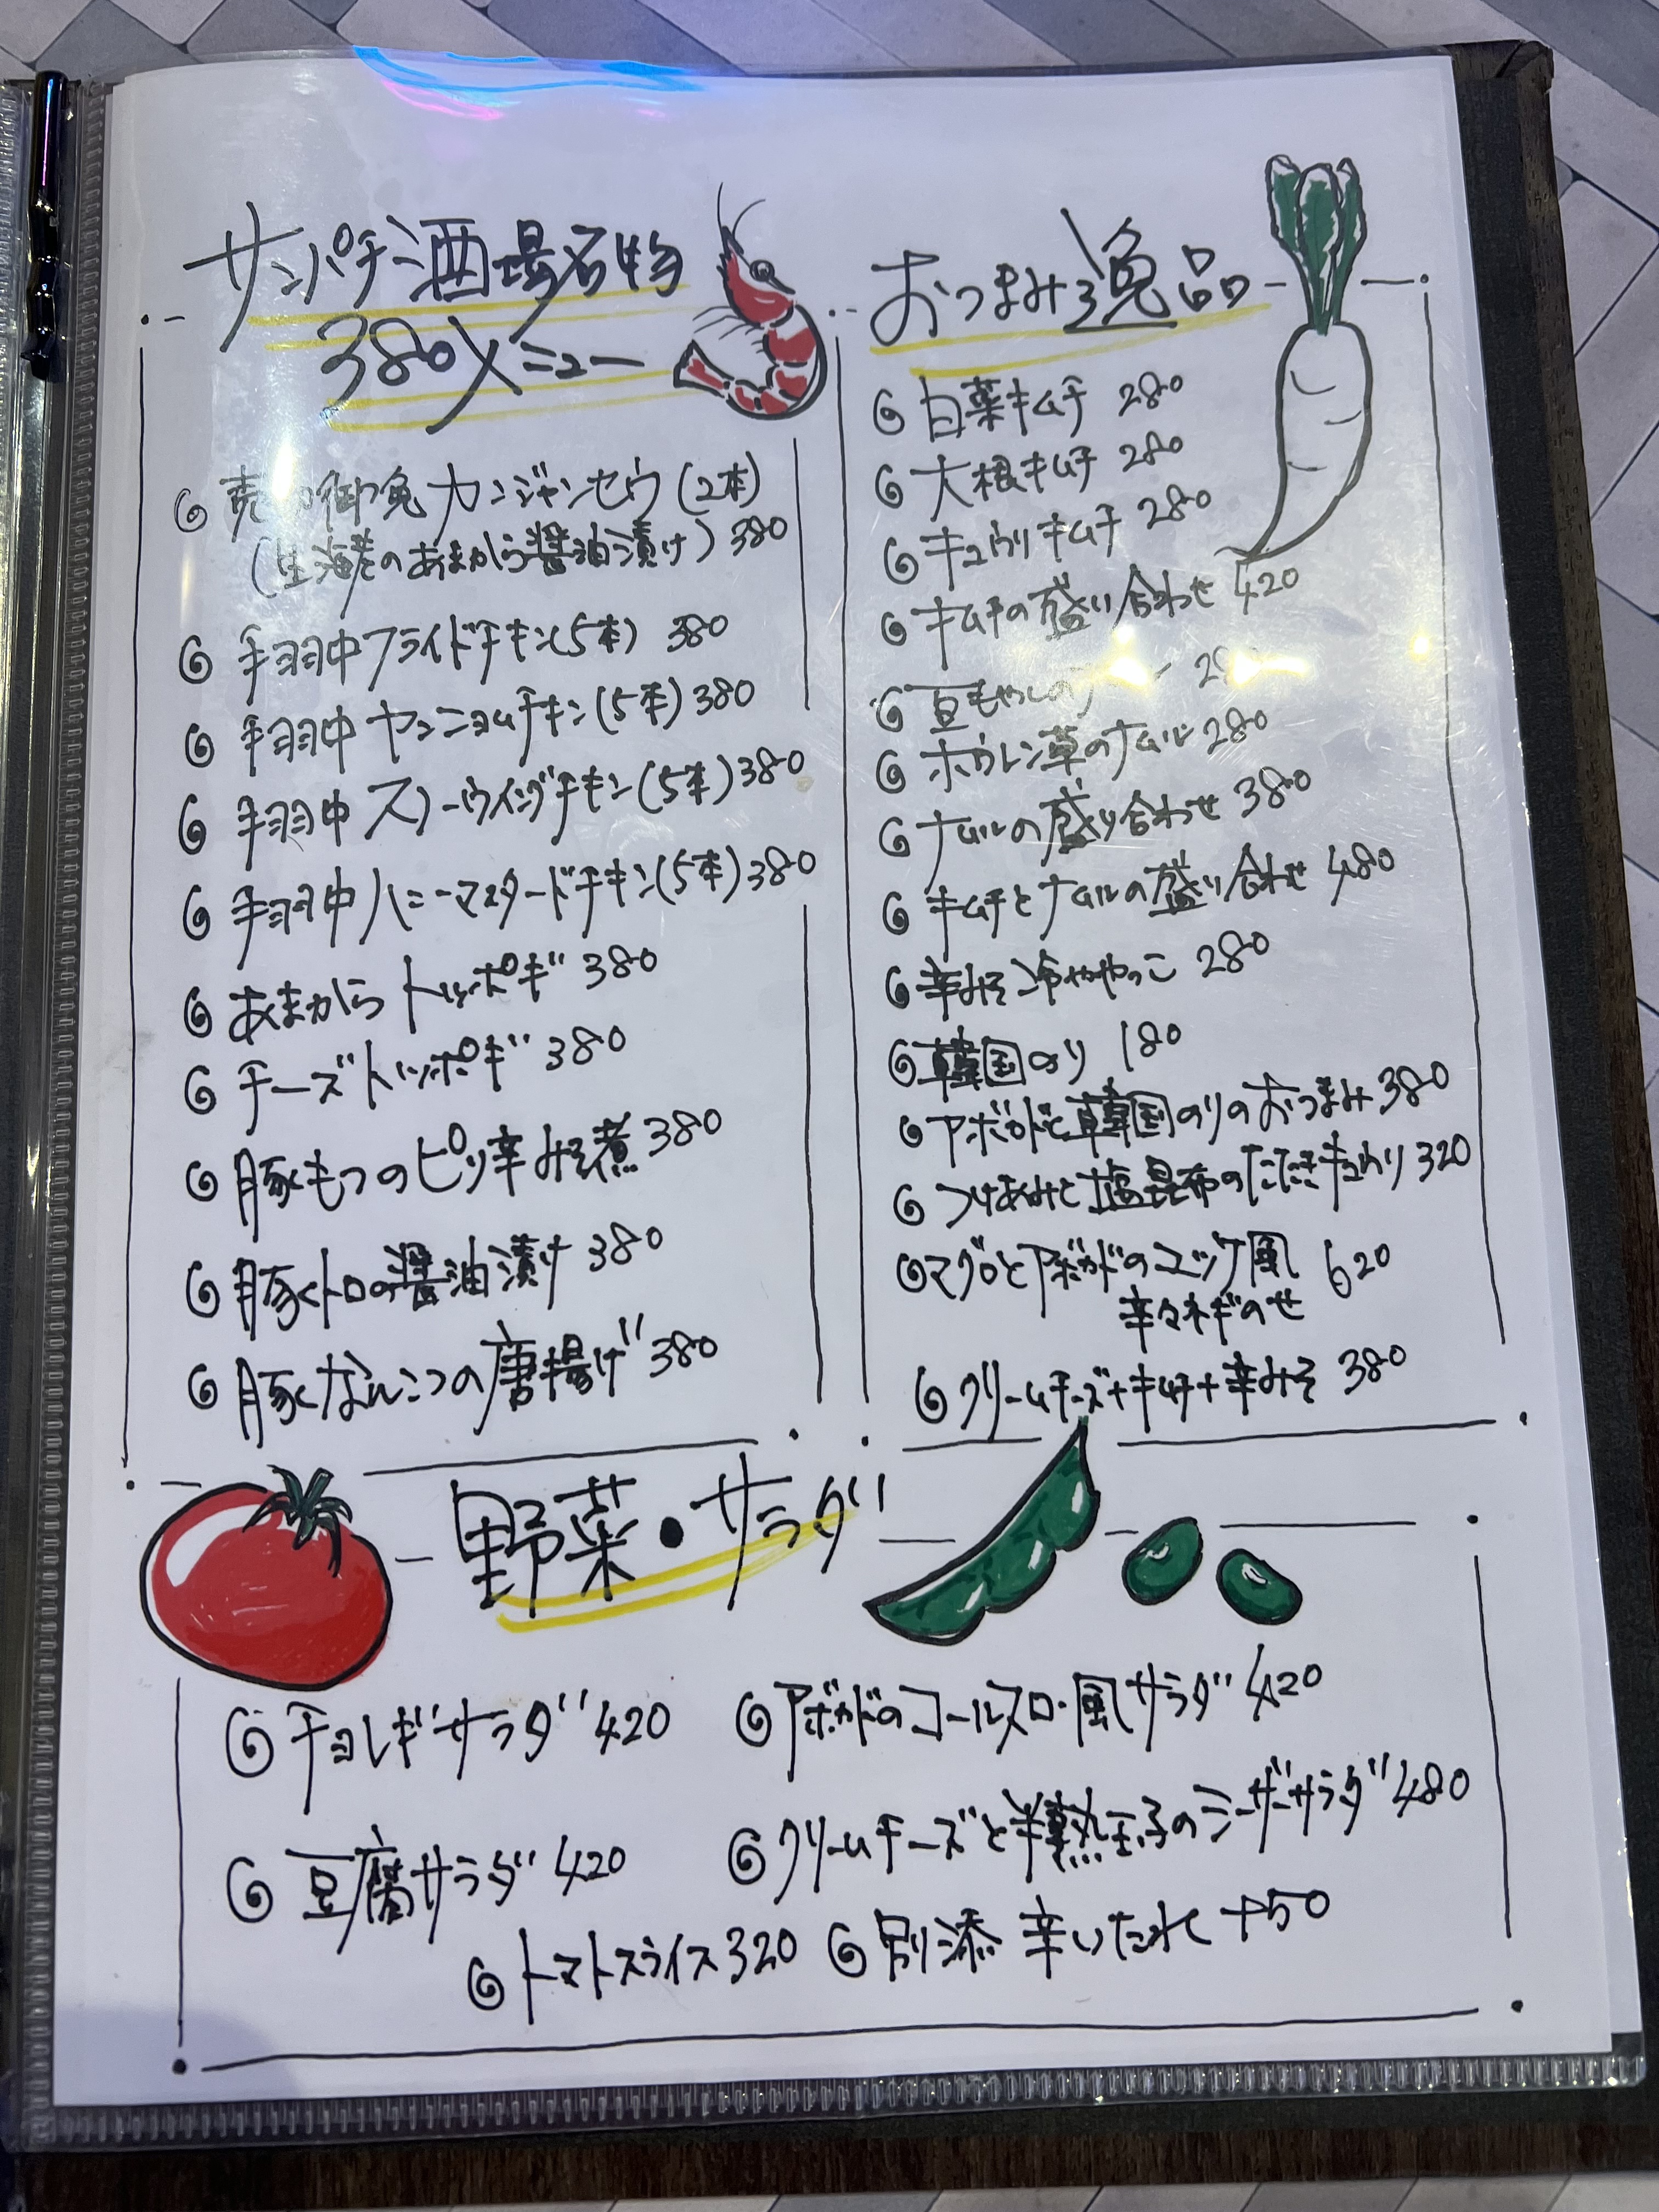 サンパチ酒場名物
380メニュー
売切御免 カンジャンセウ (2本)
(生海老のあまから醤油漬け) 380
手羽中フライドチキン(5本) 380
手羽中 ヤンニョムチキン(5本) 380
手羽中 スノーウイングチキン(5本) 380
手羽中ハニーマスタードチキン(5本) 380
あまから トッポギ 380
チーズトッポギ 380
豚もつのピリ辛みそ煮 380
豚トロの醤油漬け 380
豚なんこつの唐揚げ 380
おつまみ逸品
白菜キムチ 280
大根キムチ 280
キュウリキムチ 280
キムチの盛り合わせ 420
豆もやしの
ホウレン草のナムル 280
ナムルの盛り合わせ 380
キムチとナムルの盛り合わせ 480
辛みそ冷ややっこ 280
韓国のり 180
アボカドと韓国のりのおつまみ 380
つけあみと塩昆布のたたきキュウリ 320
マグロとアボカドのユッケ風 620
辛々ネギのせ
クリームチーズ+キムチ+辛みそ 380
野菜・サラダ
チョレギサラダ 420
アボカドのコールスロー風サラダ 420
豆腐サラダ 420
クリームチーズと半熟玉子のシーザーサラダ 480
トマトスライス 320
別添 辛いたれ +50